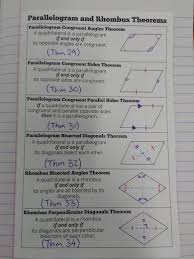 Parallelogram and Rhombus Theorems
Parallelogram Congruent Angles Theorem
A quadrilateral is a parallelogram
if and only if
its opposite angles are congruent.
(Thm 29)
Parallelogram Congruent Sides Theorem
A quadrilateral is a parallelogram
if and only if
its opposite sides are congruent.
(Thm 30)
Parallelogram Congruent Parallel Sides Theorem
if and only if
(Thm 31)
Parallelogram Bisected Diagonals Theorem
A quadrilateral is a parallelogram
if and only if
its diagonals bisect each other.
(Thm 32)
Rhombus Bisected Angles Theorem
A quadrilateral is a rhombus
if and only if
its angles are all bisected by its
diagonals.
(Thm 33)
Rhombus Perpendicular Diagonals Theorem
A quadrilateral is a rhombus
if and only if
its diagonals are perpendicular
bisectors of each other.
(Thm 34)